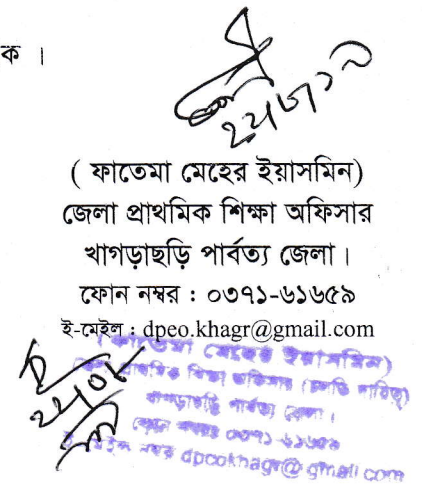 ক ।
( ফাতেমা মেহের ইয়াসমিন)
জেলা প্রাথমিক শিক্ষা অফিসার
খাগড়াছড়ি পার্বত্য জেলা ।
ফোন নম্বর : ০৩৭১-৬১৬৫৯
ই-মেইল : dpeo.khagr@gmail.com
(ফাতেমা মেহের ইয়াসমিন)
জেলা প্রাথমিক শিক্ষা অফিসার (চলতি দায়িত্ব)
খাগড়াছড়ি পার্বত্য জেলা ।
ফোন নম্বর ০৩৭১-৬১৬৫৯
ই-মেইল নম্বর dpeokhagr@gmail.com